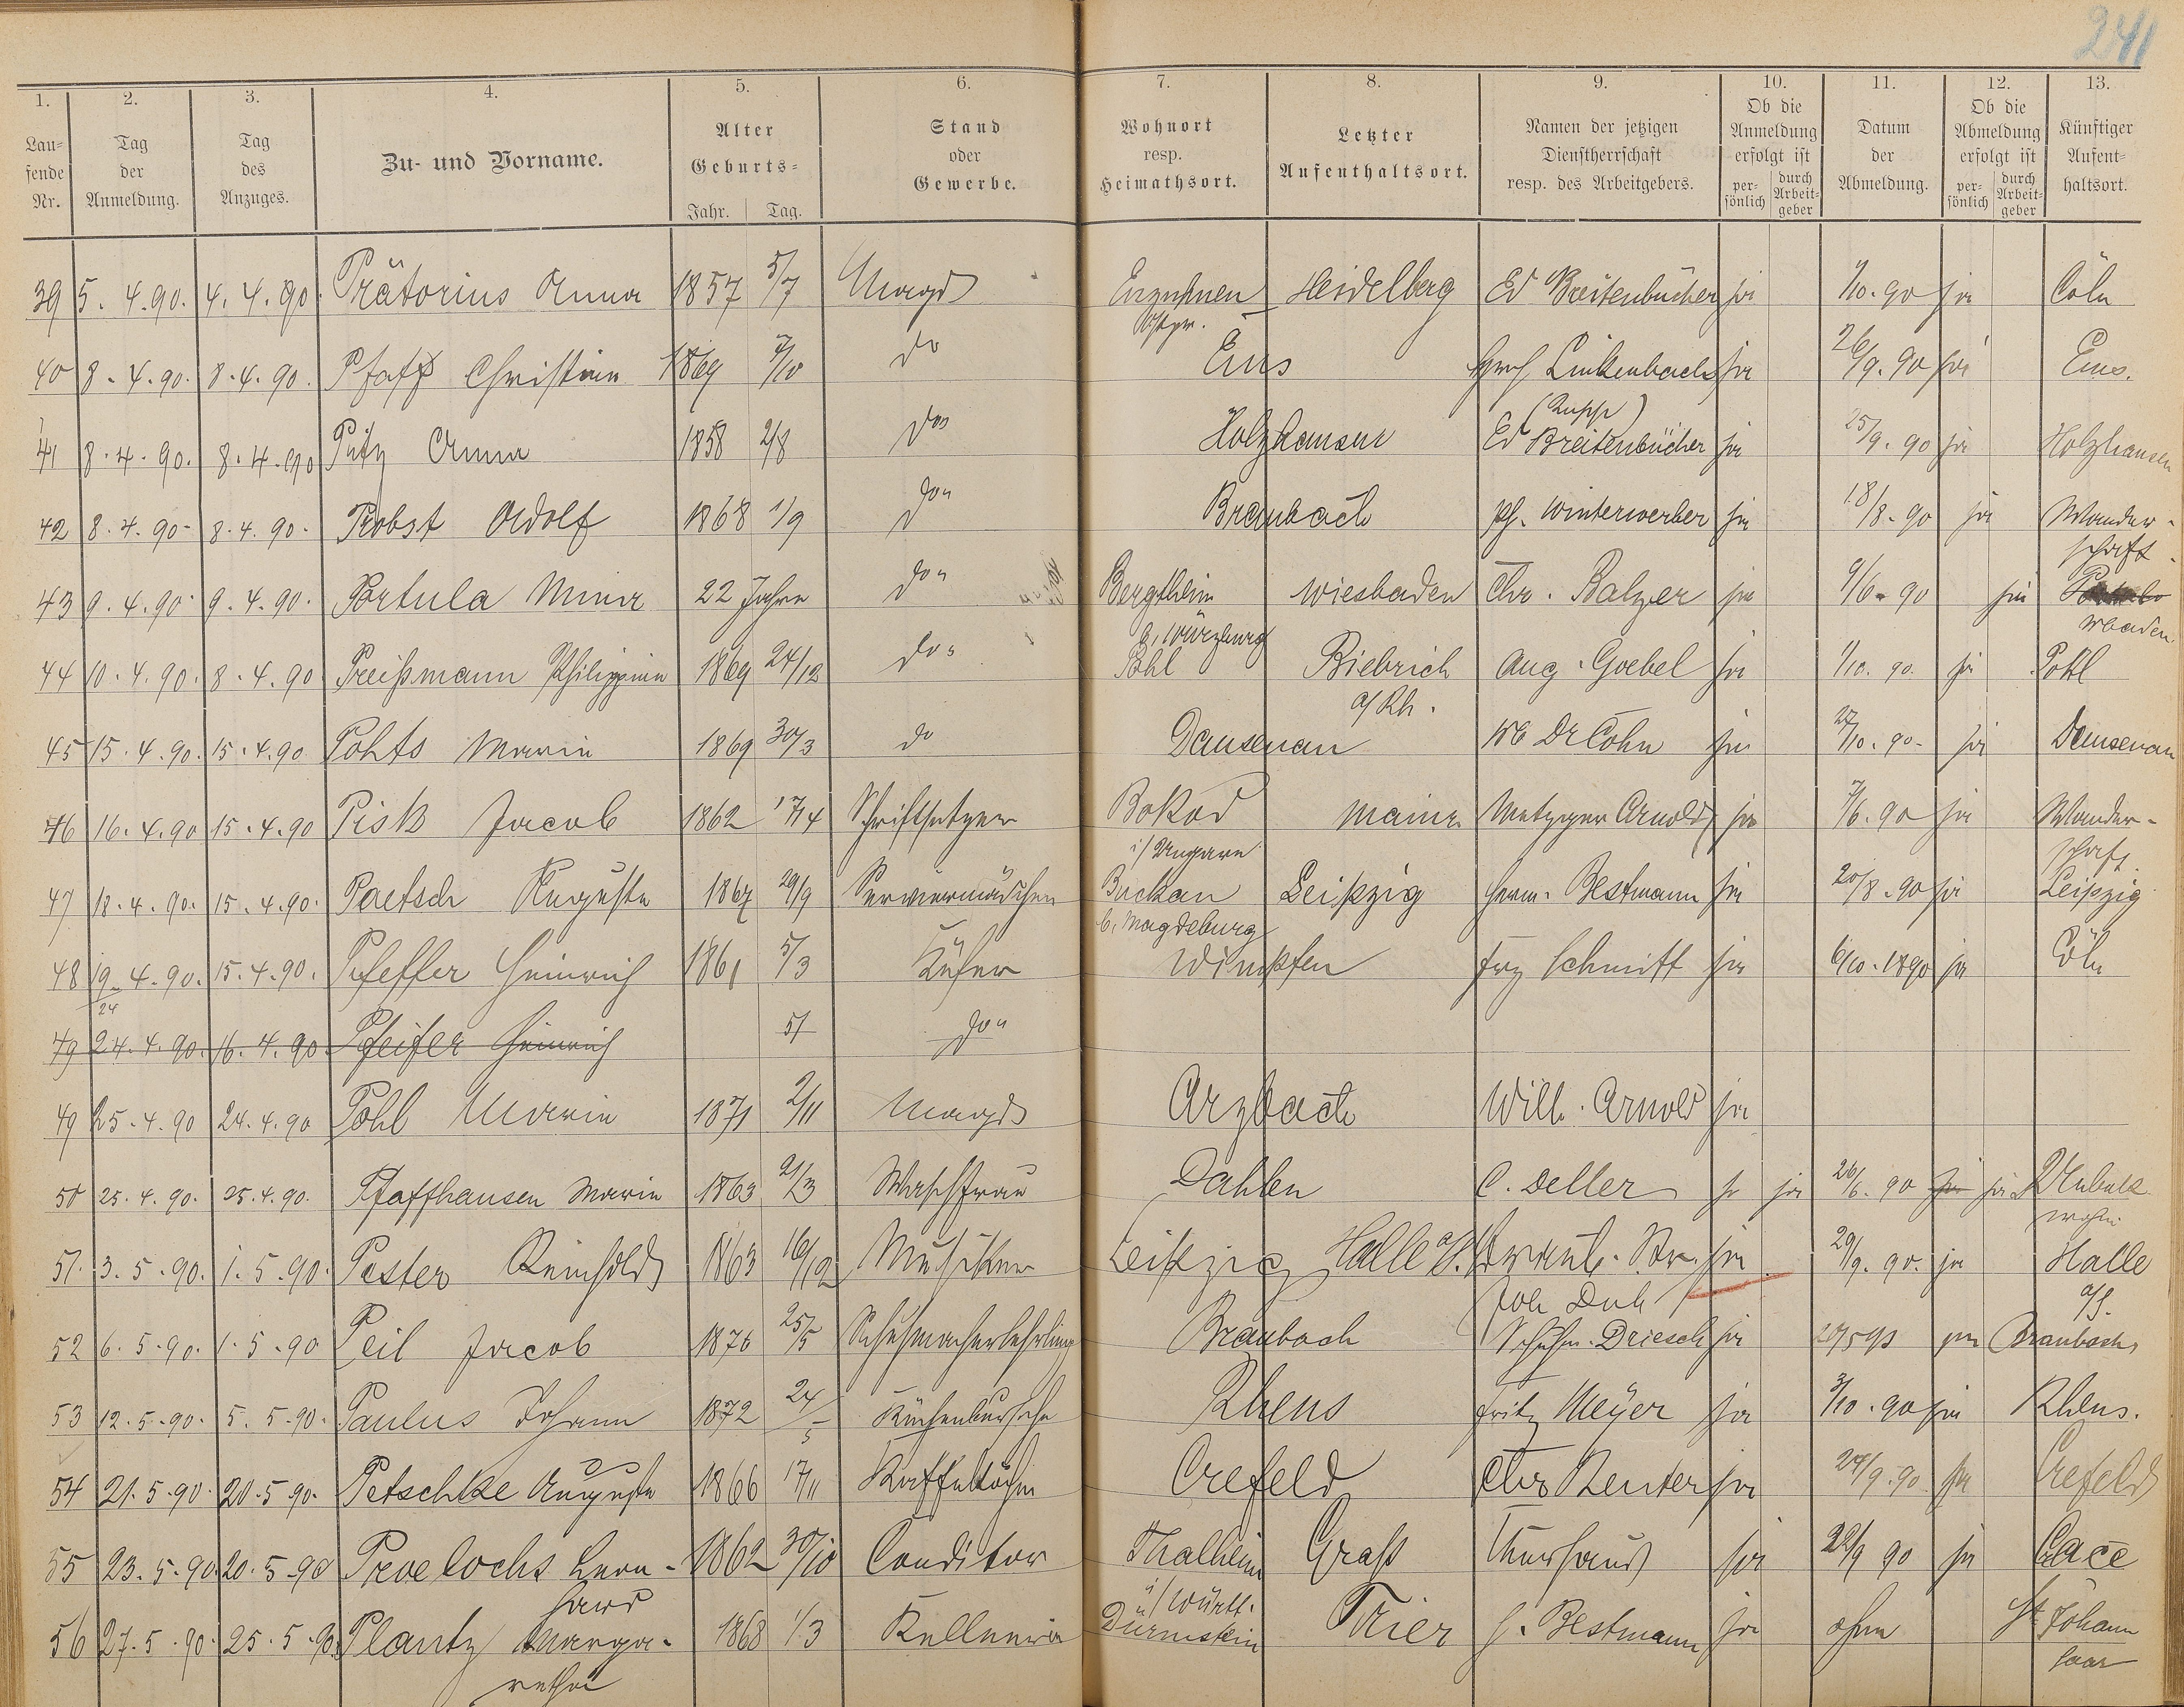 241
1. 2. 3. 4. 5. 6. 7. 8. 9. 10. 11. 12. 13.
Lau-
fende
Nr.
Tag
der
Anmeldung.
Tag
des
Anzuges.
Zu- und Vorname.
Alter
Geburts-
Jahr. Tag.
Stand
oder
Gewerbe.
Wohnort
resp.
Heimathsort.
Letzter
Aufenthaltsort.
Namen der jetzigen
Dienstherrschaft
resp. des Arbeitgebers.
Ob die
Anmeldung
erfolgt ist
per-
sönlich
durch
Arbeit-
geber
Datum
der
Abmeldung.
Ob die
Abmeldung
erfolgt ist
per-
sönlich
durch
Arbeit-
geber
Künftiger
Aufent-
haltsort.
39 5. 4. 90. 4. 4. 90. Prätorius Anna 1857 5/7 Magd Heidelberg Ed Breitenbücher ja 1/10. 90 ja Cöln
Ostpr.
40 8. 4. 90. 8. 4. 90. Pfaff Christian 1869 7/10 do Ems Linkenbach ja 26/9. 90 ja Ems.
41 8. 4. 90. 8. 4. 90 Putz Anna 1858 2/8 do Holzhausen Ed Breitenbücher ja 25/9. 90 ja Holzhausen
42 8. 4. 90. 8. 4. 90. Probst Adolf 1868 1/9 do Braubach ph. Winterwerber ja 18/8. 90 ja Wander-
schaft.
43 9. 4. 90. 9. 4. 90. Portula Mina 22 Jahre do Bergtheim Wiesbaden Chr. Balzer ja 9/6. 90 ja
b. Würzburg Wbaden
44 10. 4. 90. 8. 4. 90 Preißmann Philippine 1869 24/12 do Pohl Biebrich Aug. Goebel ja 1/10. 90. ja Pohl
a/Rh.
45 15. 4. 90. 15. 4. 90 Pohts Marie 1869 30/3 do Dausenau Dr Cohn ja 27/10. 90. ja Dausenau
46 16. 4. 90 15. 4. 90 Pisk Jacob 1862 17/4 Schriftsetzer Bokod Mainz Metzger Arnold ja 7/6. 90 ja Wander-
i/ Ungarn schaft.
47 18. 4. 90. 15. 4. 90. Paetsch Auguste 1867 29/9 Serviermädchen Buckau Leipzig Herm. Bestmann ja 20/8. 90 ja Leipzig
b. Magdeburg
48 19. 4. 90. 15. 4. 90. Pfeffer Heinrich 1861 5/3 Küfer Wimpfen Frz Schmitt ja 6/10. 1890 ja Cöln
24
49 24. 4. 90. 16. 4. 90 Pfeifer Heinrich 5/ do
49 25. 4. 90 24. 4. 90 Pohl Marie 1871 2/11 Magd Arzbach Wilh. Arnold ja
50 25. 4. 90. 25. 4. 90. Pfaffhausen Marie 1863 21/3 Waschfrau Dahlen C. Deller ja ja 26/6. 90 ja ja
51. 3. 5. 90. 1. 5. 90. Pester Reinhold 1863 16/12 Musiker Leipzig Halle a/S. ja 29/9. 90. ja Halle
a/S.
52 6. 5. 90. 1. 5. 90 Peil Jacob 1876 25/5 Schuhmacherlehrling Braubach Schuhm. Driesch ja Braubach
53 12. 5. 90. 5. 5. 90. Paulus Johann 1872 24/5 Küchenbursche Rhens Fritz Meyer ja 3/10. 90 ja Rhens.
54 21. 5. 90. 20. 5. 90. Petschke Auguste 1866 17/11 Kaffeeköchin Crefeld Chr Reuter ja 24/9. 90 ja Crefeld
55 23. 5. 90. 20. 5. 90 Proelochs Leon- 1862 30/10 Conditor Thalheim Kurhaus ja 22/9 90 ja
hard i/Württ.
56 27. 5. 90. 25. 5. 90. Plantz Marga- 1868 1/3 Kellnerin Dürmstein Trier H. Bestmann ja ohne St. Johann
retha Saar